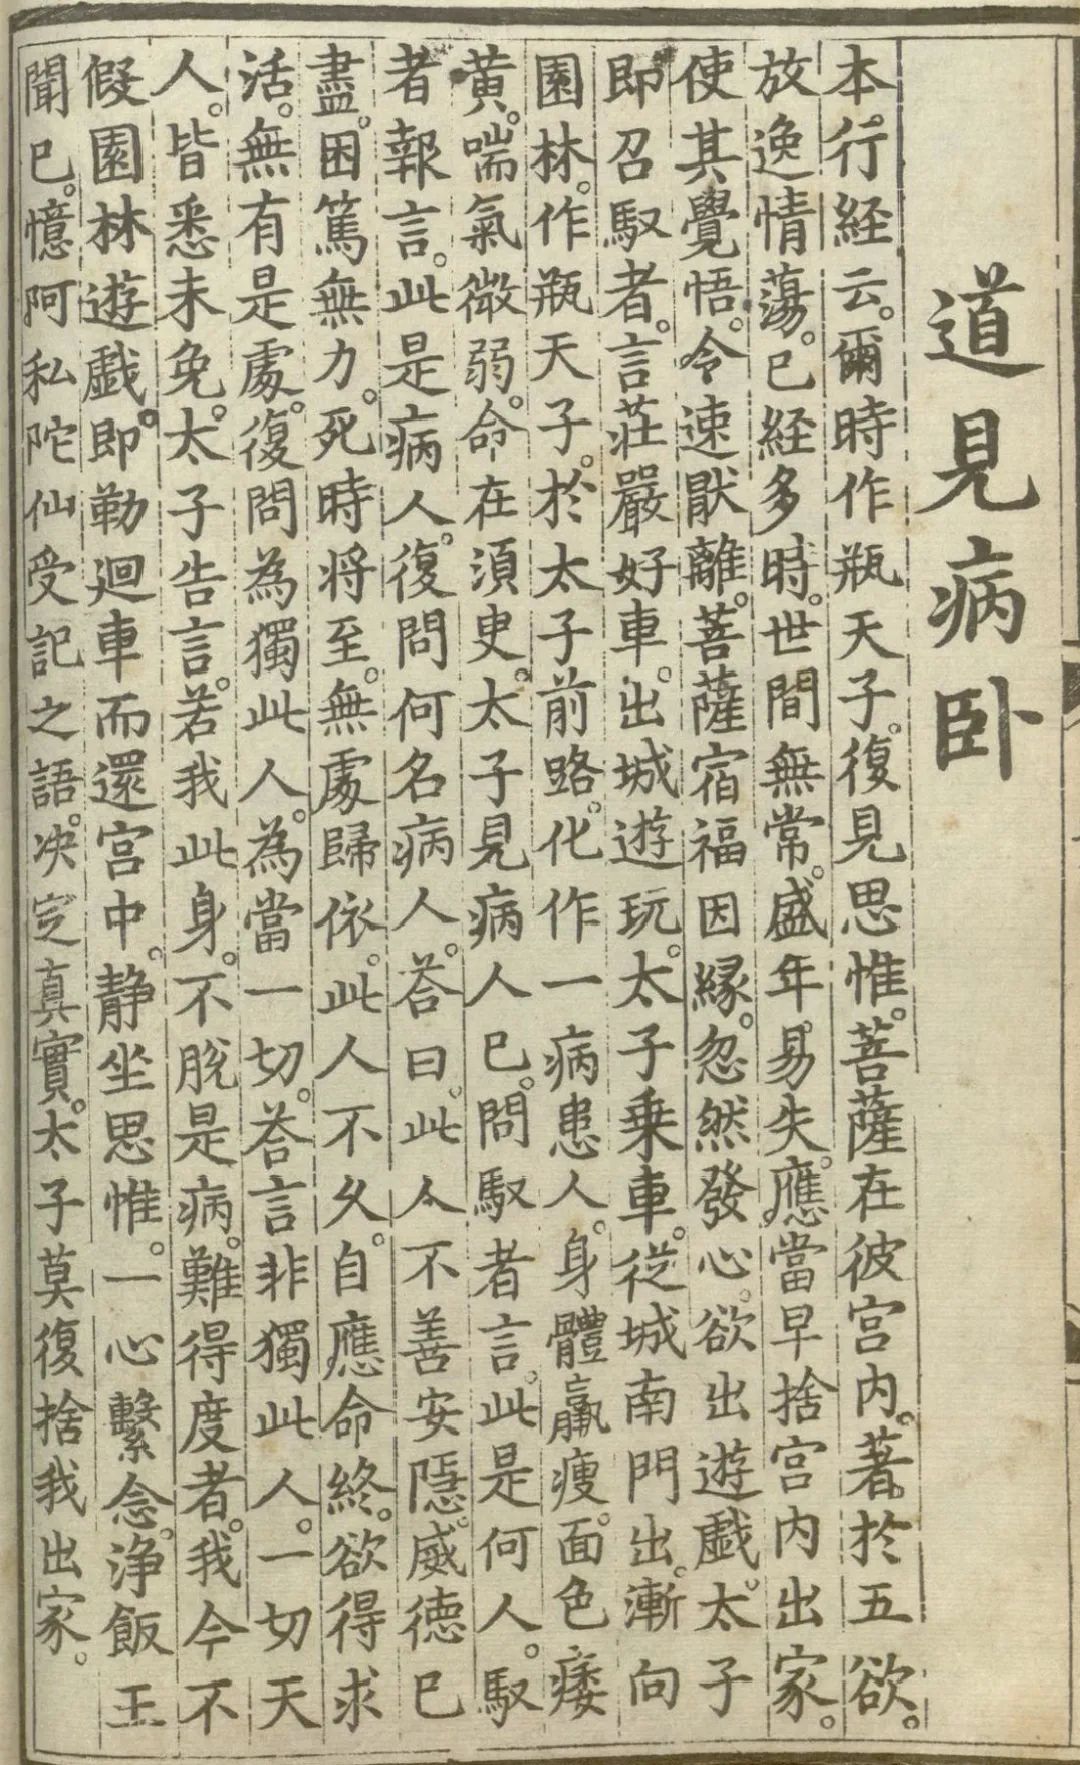 道見病臥
本行経云。爾時作瓶天子。復見思惟。菩薩在彼宮内。著於五欲。
放逸情蕩。已経多時。世間無常。盛年易失。應當早捨宮内出家。
使其覺悟。令速猒離。菩薩宿福因縁。忽然發心。欲出遊戱。太子
即召馭者。言莊嚴好車。出城遊玩。太子乗車。従城南門出。漸向
園林。作瓶天子。於太子前路。化作一病患人。身體羸瘦。面色痿
黄。喘氣微弱。命在須臾。太子見病人已。問馭者言。此是何人。馭
者報言。此是病人。復問何名病人。荅曰。此人不善安隱。威徳已
盡。困篤無力。死時将至。無處歸依。此人不久。自應命終。欲得求
活。無有是處。復問為獨此人。為當一切。荅言非獨此人。一切天
人。皆悉未免。太子告言。若我此身。不脫是病。難得度者。我今不
假園林遊戱。即勒迴車而還宮中。静坐思惟。一心繫念。浄飯王
聞已。憶阿私陀仙受記之語。决定真實。太子莫復捨我出家。